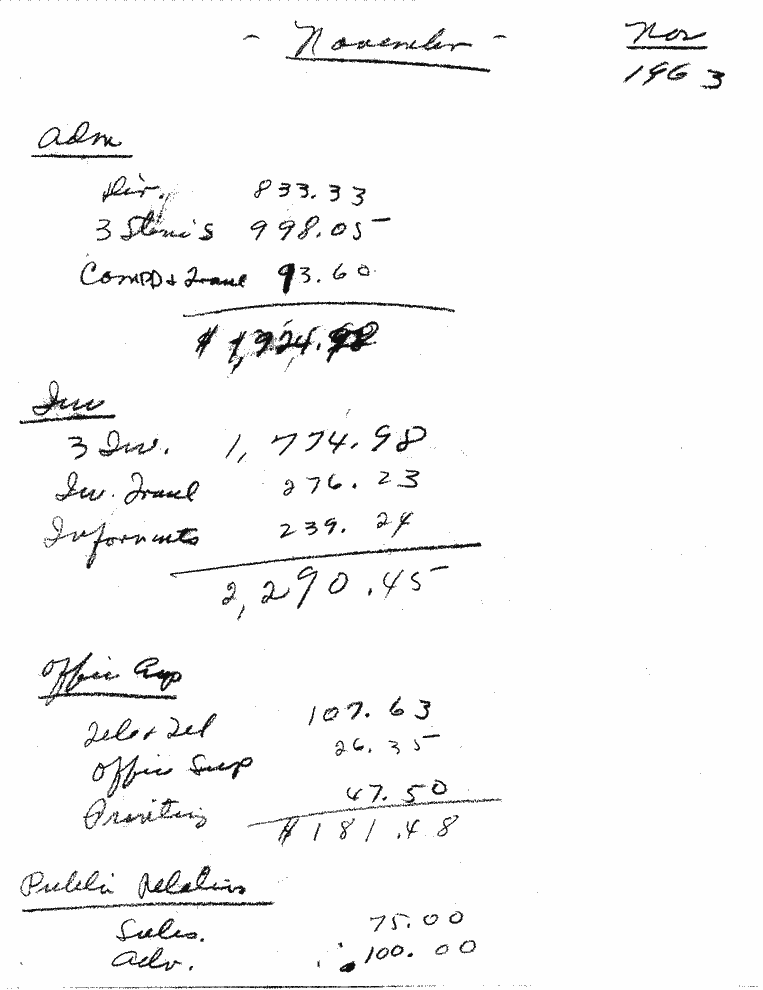 - November -
Nov
1963
Adm
Dir. 833.33
3 Steno's 998.05
Comp D & Travel 93.60
$ 1,924.98
Inv
3 Inv. 1,774.98
Inv. Travel 276.23
Informants 239.24
2,290.45
Office Exp
Tele & Tel 107.63
Office Sup 26.35
Printing 47.50
$181.48
Public Relations
Subs. 75.00
Adv. 100.00